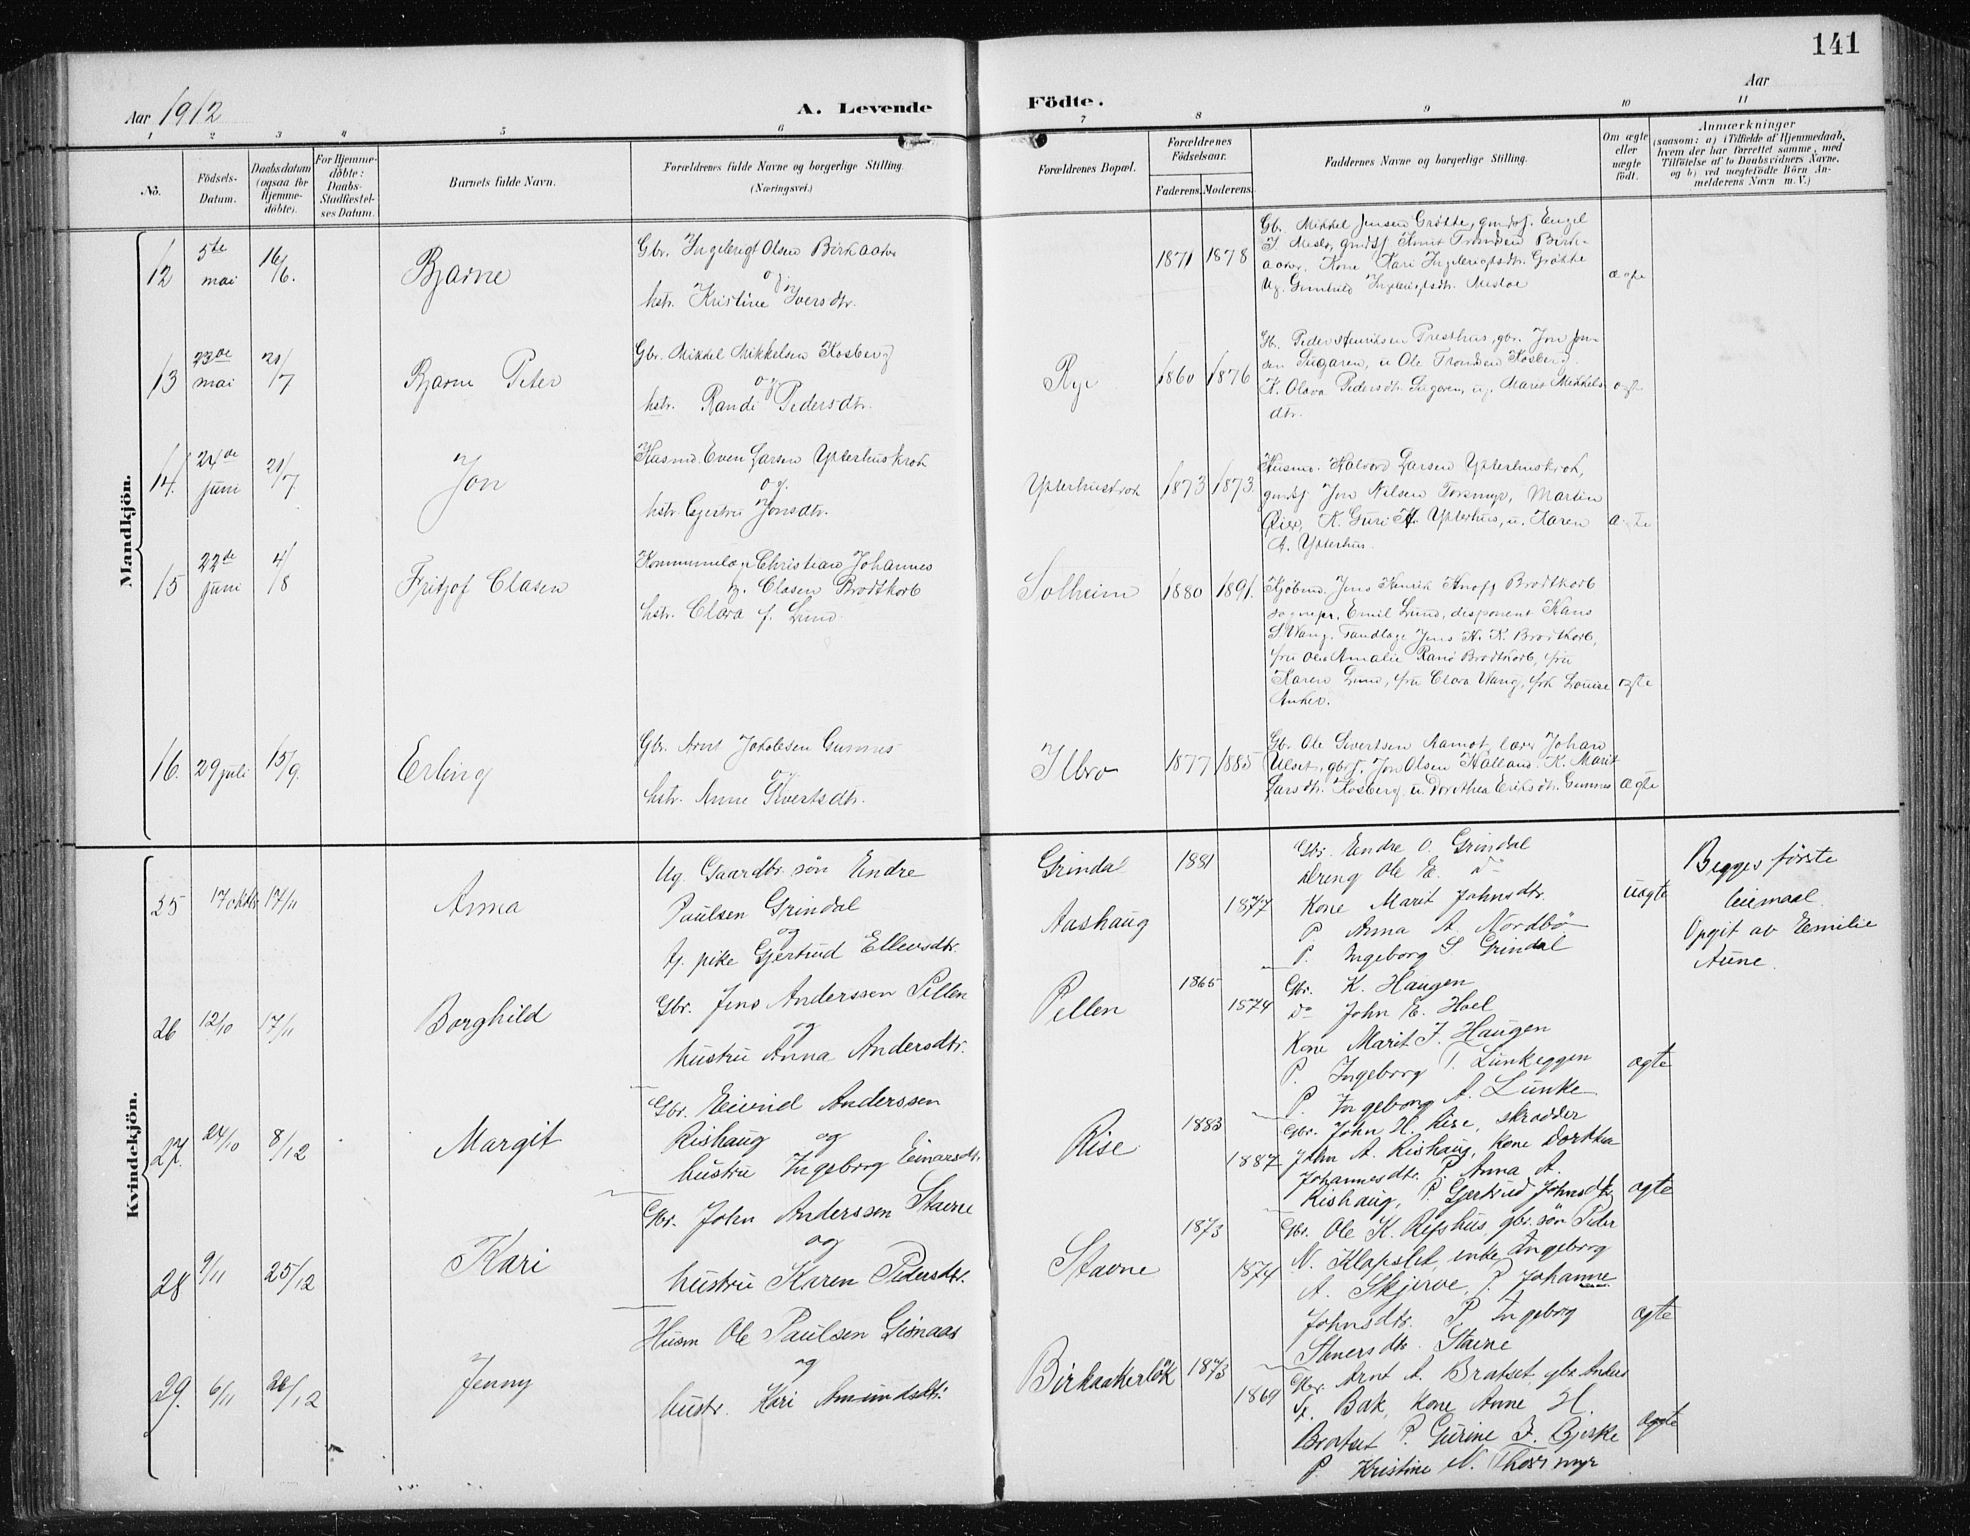 141
Aar 1912
A. Levende
Födte.
Aar
1 2 3 4 5 6 7 8 9 10 11
No.
Födsels-
Datum.
Daabsdatum
(ogsaa för
Hjemme-
döbte).
For Hjemme-
döbte:
Daabs-
Stadfæstel-
ses Datum.
Barnets fulde Navn.
Forældrenes fulde Navne og borgerlige Stilling.
(Næringsvei.)
Forældrenes Bopæl.
Forældrenes
Födselsaar.
Faderens. Moderens.
Faddernes Navne og borgerlige Stilling.
Om ægte
eller
uægte
födt.
Anmærkninger
(saasom: a) i Tilfælde af Hjemmedaab,
hvem der har forrettet samme, med
Tilföielse af to Daabsvidners Navne,
og b) ved uægtefödte Börn An-
melderens Navn m. V.)
Mandkjön.
12
5te
mai
16/6.
Bjarne
Gbr. Ingebrigt Olsen Birkaaker
og
hstr. Kristine Iversdtr.
1871 1878
Gb. Mikkel Jensen Grøtte, gmdsj. Engel
I. Meslo, gmdsj. Arnt Tronsen Birk-
aaker, Kone Kari Ingebrigtsdtr. Grøtte
Ug. Gunhild Ingebrigtsdtr. Mesloe
ægte
13
23de
mai
21/7
Bjarne Peter
Gbr. Mikkel Mikkelsen Hosberg
og
hstr. Randi Pedersdtr.
Rye
1860 1876
Gb. Peder Henriksen Presthus, gbr. Jon Jon-
sen Sugaren, u. Ole Tronsen Hosberg.
K. Olava Pedersdtr. Sugaren, u. Maret Mikkels-
dtr.
ægte
14.
24de
juni
21/7
Jon
Husmd. Even Larsen Ypterhuskrok
og.
hstr. Gjertru Jonsdtr.
Ypterhuskrok
1873 1873.
Husmd. Halvord Larsen Ypterhuskrok,
gmdsj. Jon Nilsen Torsmyr, Martin
Øier, K. Guri H. Ypterhus, u. Karen
A. Ypterhus.
ægte
15
22de
juni
4/8
Fritjof Clasen
Kommunelæ. Christian Johannes
Clasen Brodtkorb
hstr. Clara f. Lund.
Solheim
1880 1891.
Kjøbmd. Jens Henrik Knoff Brodtkorb
sognepr. Emil Lund, disponent Hans
S. Wang, Tandlæge Jens H. K. Brodtkorb,
fru Olea Amalie Brodtkorb, fru
Karen Lund, fru Clara Wang, frk Louise
Anker.
ægte
16.
29 juli
15/9.
Erling
Gbr. Arnt Jakobsen Gunnes
og
hstr. Anne Sivertsdtr.
Ilbro
1877 1885
Gb. Ole Sivertsen Aamot, lærr Johan
Ulset, gbrsj. Jon Olsen Halland. K. Marit
Larsdtr. Hosberg, u. Dorothea Eriksdtr. Gunnes
ægte
Kvindekjön.
25
17 oktbr
17/11
Anna
Ug. Gaardbr.søn Endre
Paulsen Grindal
og
Ug. pike Gjertrud Ellevsdtr.
Grindal
Aashaug
1881
1877
Gbr. Endre O. Grindal
Dreng Ole E. Do
Kone Marit Johnsdtr.
P. Anna A. Nordbö
P. Ingeborg S Grindal
uægte
Begges förste
leiemaal.
Opgit av Emilie
Aune.
26
12/10
17/11
Borghild
Gbr. Jens Anderssen Pellen
og
hustru Anna Andersdtr.
Pellen
1865
1874
Gbr. K. Haugen
Do John E. Hoel
Kone Marit J. Haugen
P. Ingeborg T. Lunkeggen
P. Ingeborg A. Lunke
ægte
27.
24/10
8/12
Margit
Gbr. Eivind Anderssen
Rishaug og
hustru Ingeborg Einarsdtr.
Rise
1883
1887
Gbr. John H. Rise, skrædder
John A. Rishaug, Kone Dorthea
Johannesdtr. P. Anna A.
Rishaug, P. Gjertrud Johnsdtr.
ægte
28
9/11
25/12
Kari
Gbr. John Anderssen Stavne
og
hustru Karen Pedersdtr.
Stavne
1873
1874
Gbr. Ole K. Refshus gbr.søn Peder
N. Klapslet, enke Ingeborg
A. Skjerve, P. Johanne
Johnsdtr. P. Ingeborg
Stavne
ægte
29.
6/11
26/12
Jenny
Husm Ole Paulsen Gisnaas
og
hustr. Kari Amundsdtr.
Birkaakerlök
1873
1869
Gbr. Arnt A. Bratset, gbr. Anders
Bak, Kone Anne H.
Bratset P. Gurine J. Bjerke
P. Kristine N. Thorsmyr
ægte